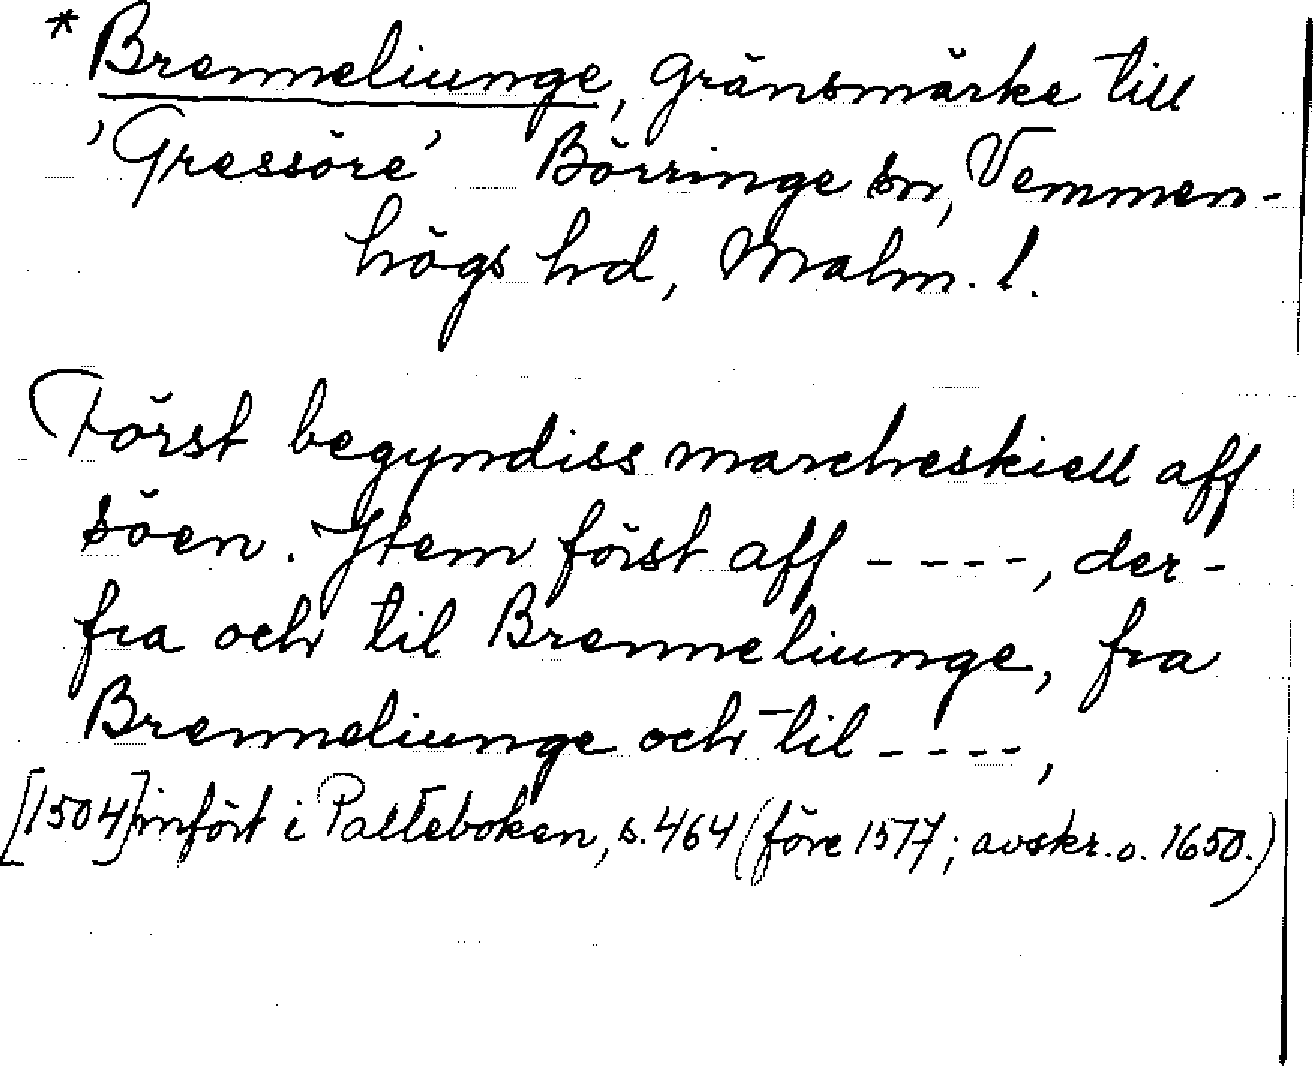 * Brenneliunge, gränsmärke till
'Gressöre' Börringe sn, Vemmen-
högs hd, Malm. l.
Först begyndiss marcheskiell aff
söen. Jtem först aff - - - -, der-
fra och til Brenneliunge, fra
Brenneliunge och til - - - -,
[1504] infört i Palteboken, s. 464 (före 1577; avskr. o. 1650.)